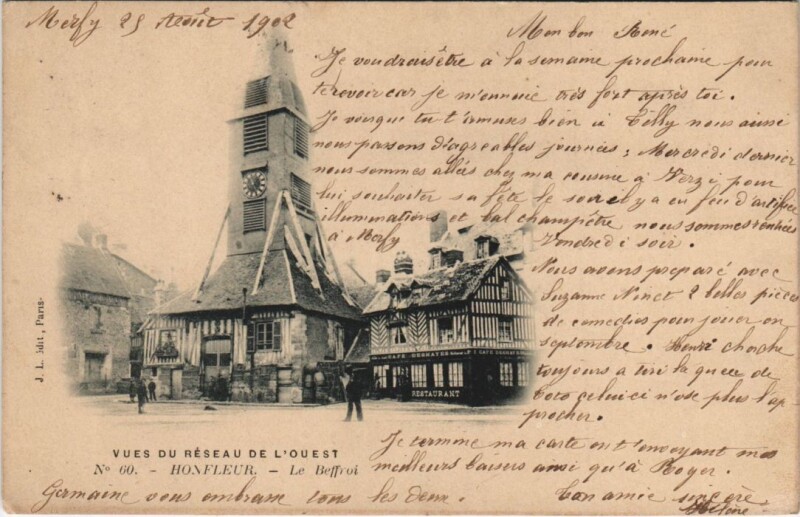 Merfy 25 Août 1902
Mon bon René
Je voudrais être à la semaine prochaine pour
te revoir car je m'ennuie très fort après toi.
Je vois que tu t'amuses bien à Tilly nous aussi
nous passons d'agréables journées ; Mercredi dernier
nous sommes allés chez ma cousine à Verzi pour
lui souhaiter sa fête le soir il y a eu feu d'artifice
illuminations et bal champêtre nous sommes rentrées
à Merfy Vendredi soir.
Nous avons preparé avec
Suzanne Ninet 2 belles pièces
de comedies pour jouer en
septembre. Henri cherche
toujours a tiré la queue de
Toto celui ci n'ose plus l'ap-
procher.
Je termine ma carte en t'envoyant mes
meilleurs baisers ainsi qu'à Roger.
Ton amie sincère
Hélène
Germaine vous embrasse tous les deux.
CAFÉ
RESTAURANT
J. L. édit, Paris
VUES DU RÉSEAU DE L'OUEST
Nº 60. - HONFLEUR. - Le Beffroi